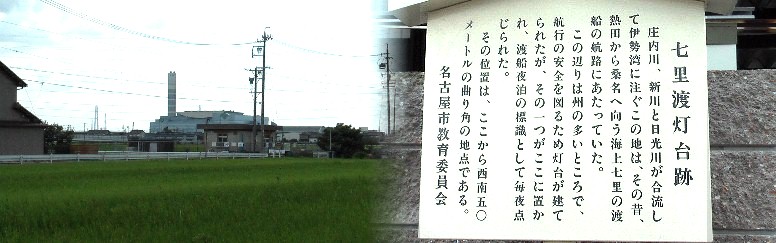 七里渡灯台跡
庄内川、新川と日光川が合流し
て伊勢湾に注ぐこの地は、その昔、
熱田から桑名へ向う海上七里の渡
船の航路にあたっていた。
この辺りは州の多いところで、
航行の安全を図るため灯台が建て
られたが、その一つがここに置か
れ、渡船夜泊の標識として毎夜点
じられた。
その位置は、ここから西南五〇
メートルの曲り角の地点である。
名古屋市教育委員会